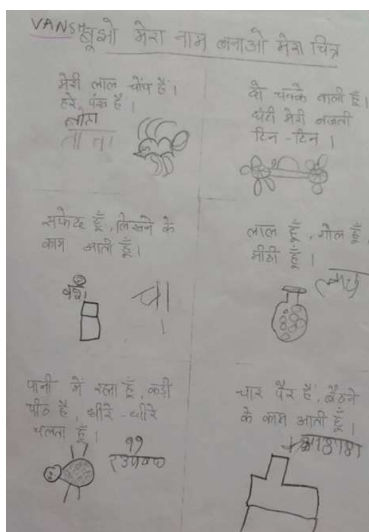 VANSH
बूझो मेरा नाम बनाओ मेरा चित्र
मेरी लाल चोंच हैं।
हरे पंख हैं।
तोता
दो चक्के वाली हूँ।
घंटी मेरी बजती
टिन - टिन।
सफेद हूँ, लिखने के
काम आती हूँ।
लाल हूँ, गोल हूँ
मीठी हूँ।
पानी में रहता हूँ, कड़ी
पीठ है, धीरे - धीरे
चलता हूँ।
चार पैर हैं, बैठने
के काम आती हूँ।